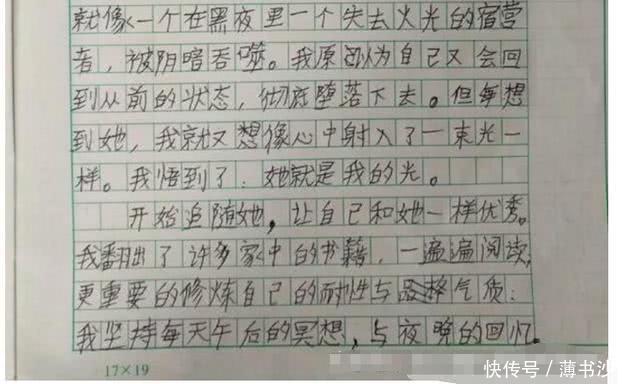 就像一个在黑夜里一个失去火光的宿营
者，被阴暗吞噬。我原以为自己又会回
到从前的状态，彻底堕落下去。但每想
到她，我就又想像心中射入了一束光一
样。我悟到了：她就是我的光。
开始追随她，让自己和她一样优秀。
我翻出了许多家中的书籍，一遍遍阅读，
更重要的修炼自己的耐性与气质：
我坚持每天午后的冥想，与夜晚的回忆。
17×19
快传号／薄书沙